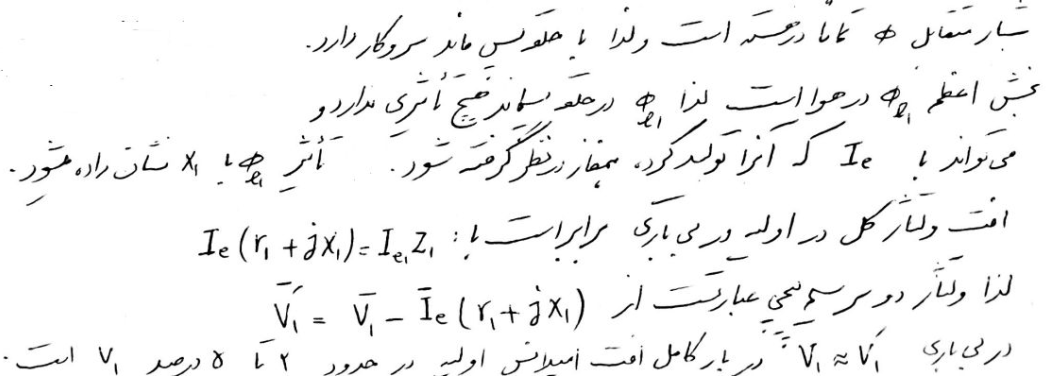 شار متقابل φ تماماً در هسته است ولذا با حلقه پس ماند سروکار دارد.
بخش اعظم φℓ₁ در هوا است لذا φℓ₁ در حلقه پسماند هیچ تأثیری ندارد و
می تواند با Ie که آنرا تولید کرده، همفاز درنظر گرفته شود. تأثیر φℓ₁ با x₁ نشان داده میشود.
افت ولتاژ کل در اولیه در بی باری برابر است با: Ie(r₁ + jx₁) = Ie₁Z₁
لذا ولتاژ دو سر سیم پیچی عبارتست از V̄₁′ = V̄₁ − Īe(r₁ + jx₁)
در بی باری V₁ ≈ V₁′ در بار کامل افت امپدانس اولیه در حدود ۲ تا ۵ درصد V₁ است.